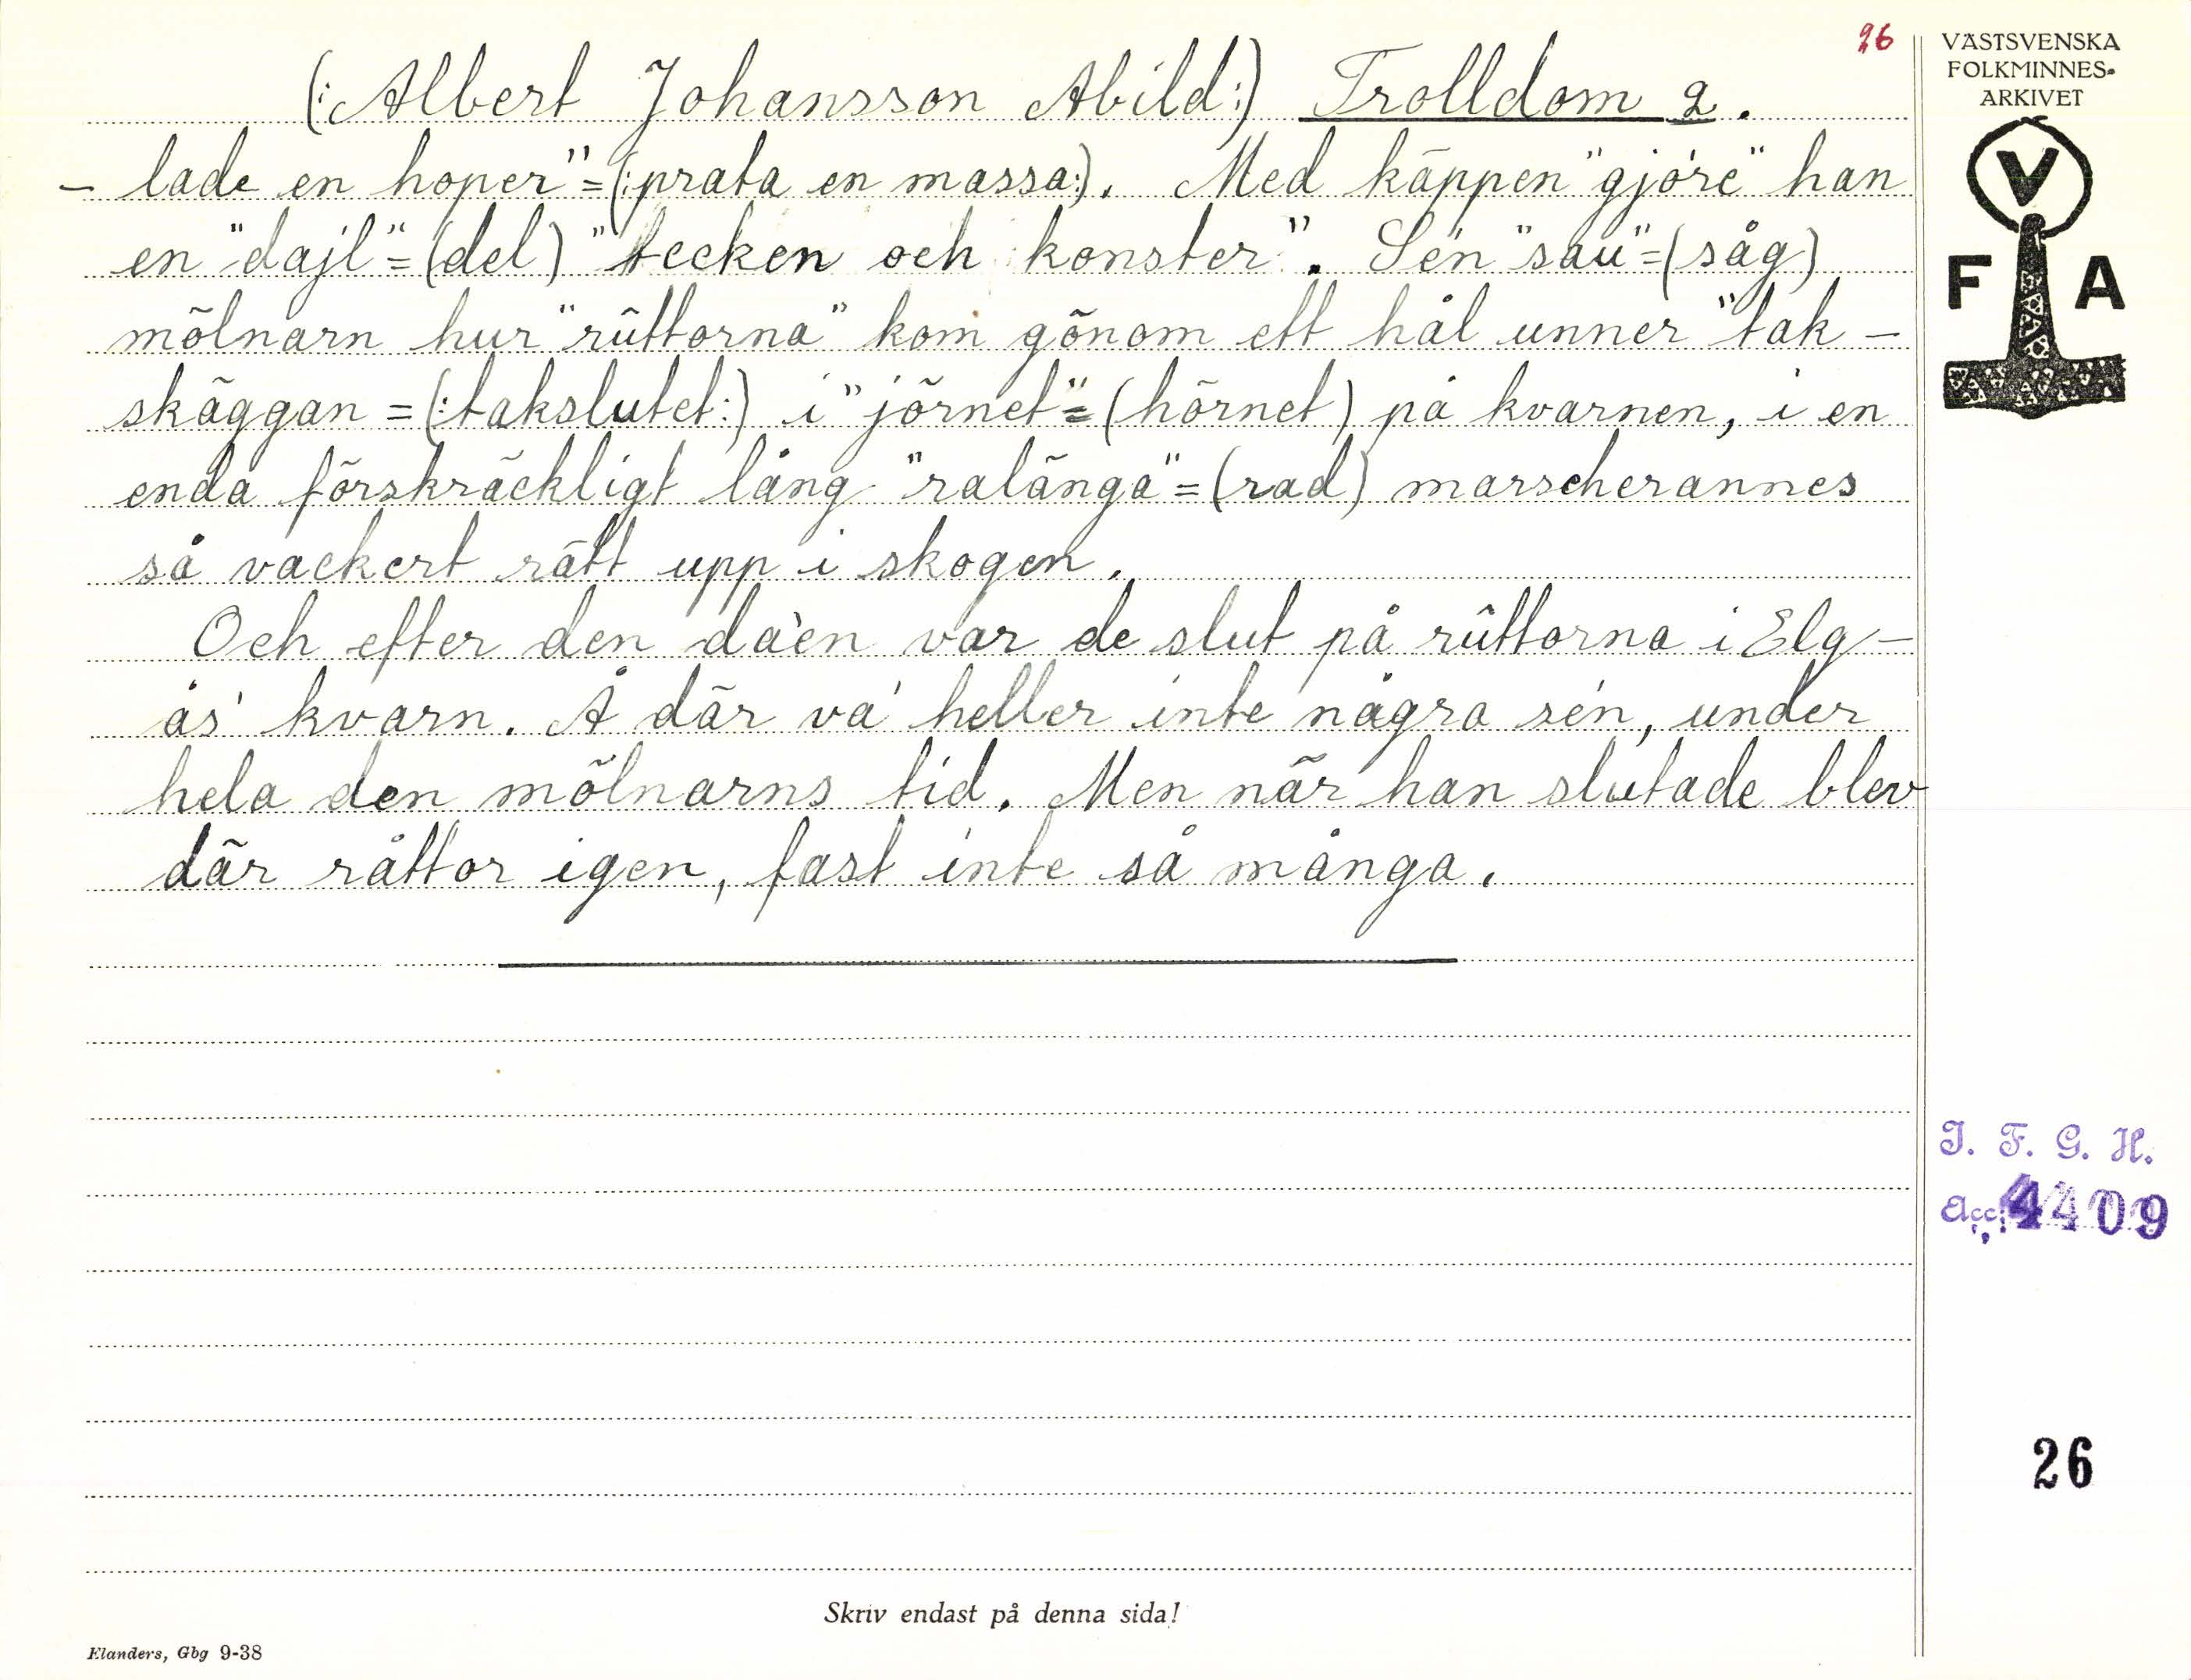 26
(:Albert Johansson Abild:) Trolldom 2.
- lade en hoper"=(:prata en massa:). Med käppen "gjöre" han
en "dajl"=(del) "tecken och konster". Sen "sau"=(såg)
mölnarn hur "rûttorna" kom gönom ett hål unner "tak-
skäggan =(:takslutet:) i "jörnet"=(hörnet) på kvarnen, i en
enda förskräckligt lång "ralänga"=(rad) marscherannes
så vackert rätt upp i skogen.
Och efter den da'en var de slut på rûttorna i Elg-
ås' kvarn. Å där va' heller inte några sén, under
hela den mölnarns tid. Men när han slutade blev
där råttor igen, fast inte så många.
VÄSTSVENSKA
FOLKMINNES-
ARKIVET
V
F A
I. F. G. H.
Acc. 4409
26
Skriv endast på denna sida!
Elanders, Gbg 9-38